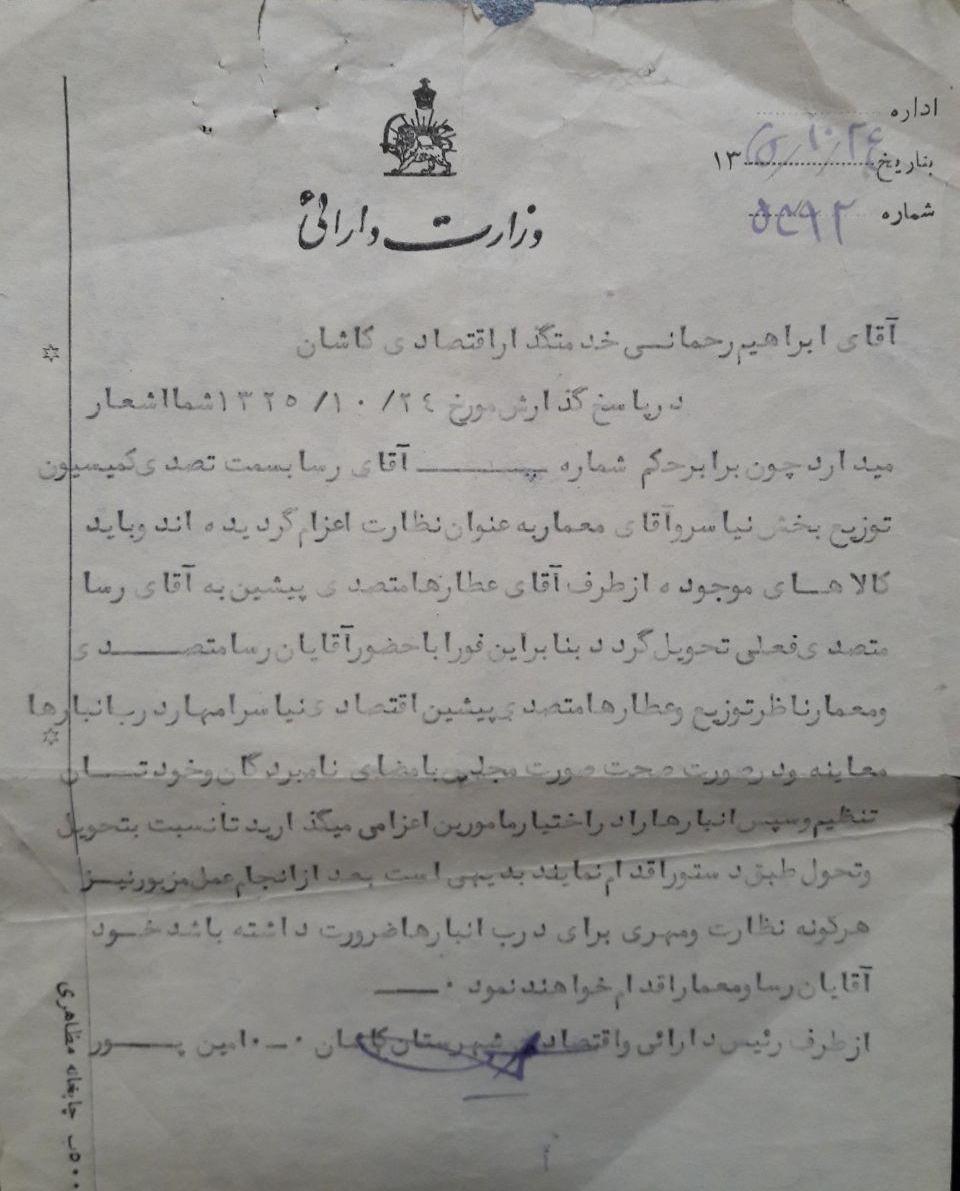 اداره
بتاریخ ۲۴/۱۰/۲۵ ۱۳
شماره ۵۴۹۲
وزارت دارائی
آقای ابراهیم رحمانی خدمتگذار اقتصادی کاشان
در پاسخ گذارش مورخ ۱۳۲۵/۱۰/۲۴ شما اشعار
میدارد چون برابر حکم شماره ـــــ آقای رسا بسمت تصدی کمیسیون
توزیع بخش نیاسر و آقای معمار به عنوان نظارت اعزام گردیده اند و باید
کالاهای موجوده از طرف آقای عطارها متصدی پیشین به آقای رسا
متصدی فعلی تحویل گردد بنابراین فورا با حضور آقایان رسا متصدی
و معمار ناظر توزیع و عطارها متصدی پیشین اقتصادی نیاسر امهار درب انبارها
معاینه و در صورت صحت صورت مجلس بامضای نامبردگان و خودتان
تنظیم و سپس انبارها را در اختیار مامورین اعزامی میگذارید تا نسبت بتحویل
و تحول طبق دستور اقدام نمایند بدیهی است بعد از انجام عمل مزبور نیز
هرگونه نظارت ومهری برای درب انبارها ضرورت داشته باشد خود
آقایان رسا و معمار اقدام خواهند نمود ۰ــ
از طرف رئیس دارائی و اقتصادی شهرستان کاشان ۰ــ۰ امین پور
۵۰۰ب چاپخانه مظاهری